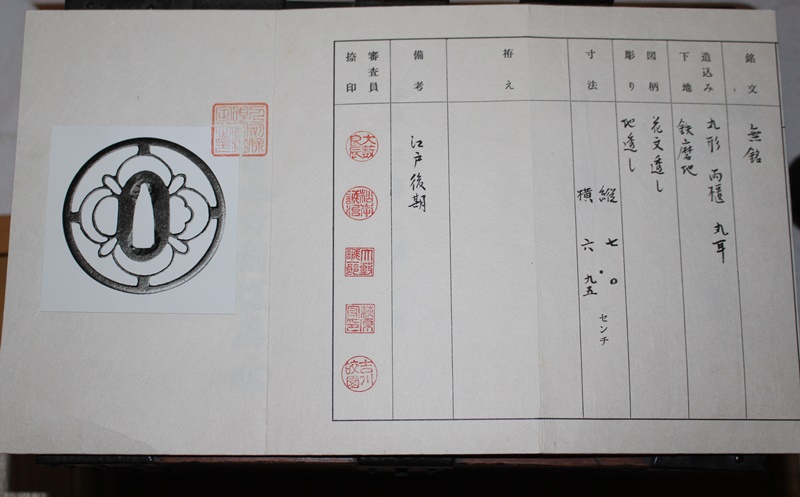 銘文
無銘
造込み
下地
丸形 両櫃 丸耳
鉄磨地
図柄
彫り
花文透し
地透し
寸法
縦 七・〇
横 六・九五 センチ
拵え
備考
江戸後期
審査員
捺印